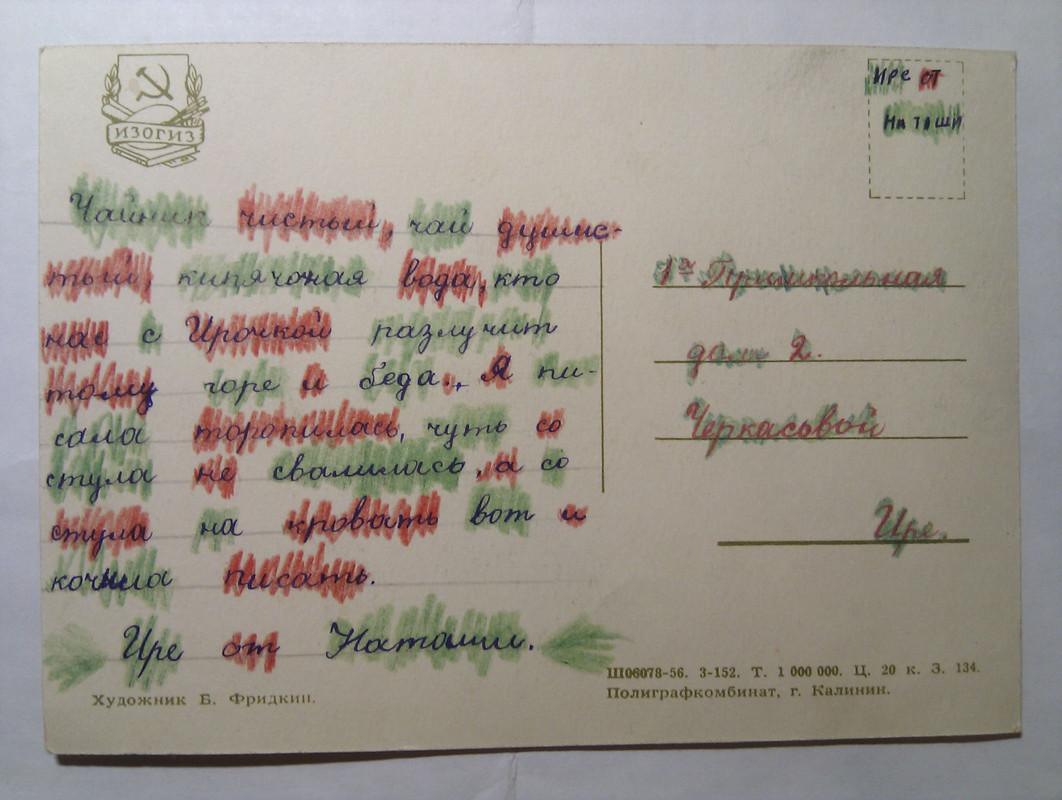 ИЗОГИЗ
Ире от
Наташи
Чайник чистый, чай душис-
тый, кипячоная вода, кто
нас с Ирочкой разлучит
тому горе и беда., Я пи-
сала торопилась, чуть со
стула не свалилась, а со
стула на кровать вот и
кочила писать.
Ире от Наташи.
1ая Пришкольная
дом 2.
Черкасовой
Ире.
Художник Б. Фридкин.
Ш06078-56. 3-152. Т. 1 000 000. Ц. 20 к. З. 134.
Полиграфкомбинат, г. Калинин.